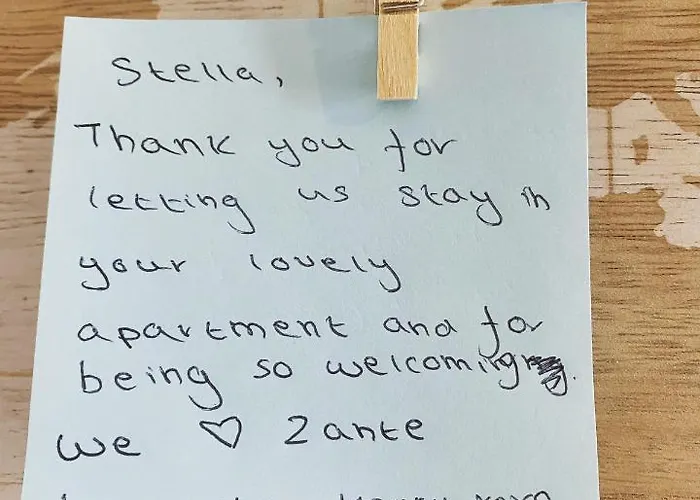 Stella,
Thank you for
letting us stay in
your lovely
apartment and for
being so welcoming.
We ♡ Zante